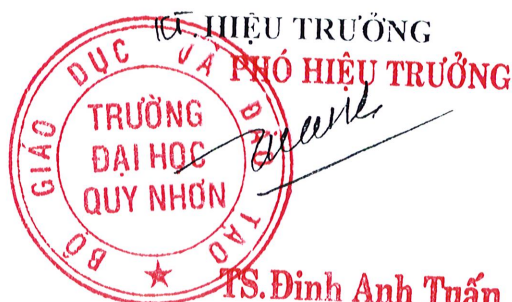 KT. HIỆU TRƯỞNG
PHÓ HIỆU TRƯỞNG
BỘ GIÁO DỤC VÀ ĐÀO TẠO
TRƯỜNG
ĐẠI HỌC
QUY NHƠN
TS. Đinh Anh Tuấn